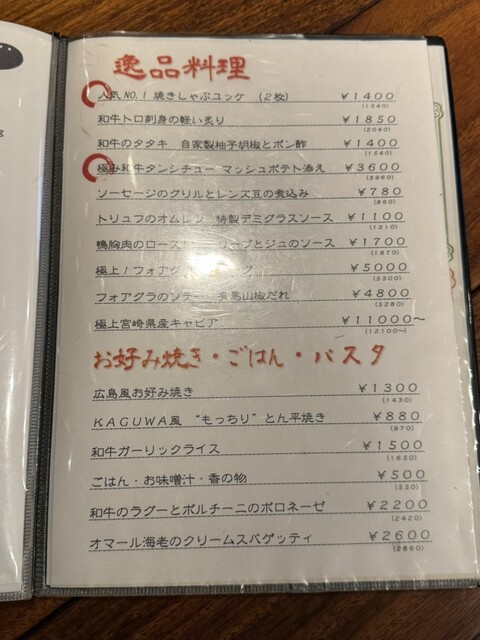 逸品料理
人気NO.1 焼きしゃぶユッケ (2枚) ¥1400
(1540)
和牛トロ刺身の軽い炙り ¥1850
(2040)
和牛のタタキ 自家製柚子胡椒とポン酢 ¥1400
(1540)
極み和牛タンシチュー マッシュポテト添え ¥3600
(3960)
ソーセージのグリルとレンズ豆の煮込み ¥780
(860)
トリュフのオムレツ 特製デミグラスソース ¥1100
(1210)
鴨胸肉のロースト リーブとジュのソース ¥1700
(1870)
極上!フォアグラ ¥5000
(5500)
フォアグラのソテー 馬山椒だれ ¥4800
(5280)
極上宮崎県産キャビア ¥11000~
(12100~)
お好み焼き・ごはん・パスタ
広島風お好み焼き ¥1300
(1430)
KAGUWA風 “もっちり”とん平焼き ¥880
(970)
和牛ガーリックライス ¥1500
(1650)
ごはん・お味噌汁・香の物 ¥500
(550)
和牛のラグーとポルチーニのボロネーゼ ¥2200
(2420)
オマール海老のクリームスパゲッティ ¥2600
(2860)